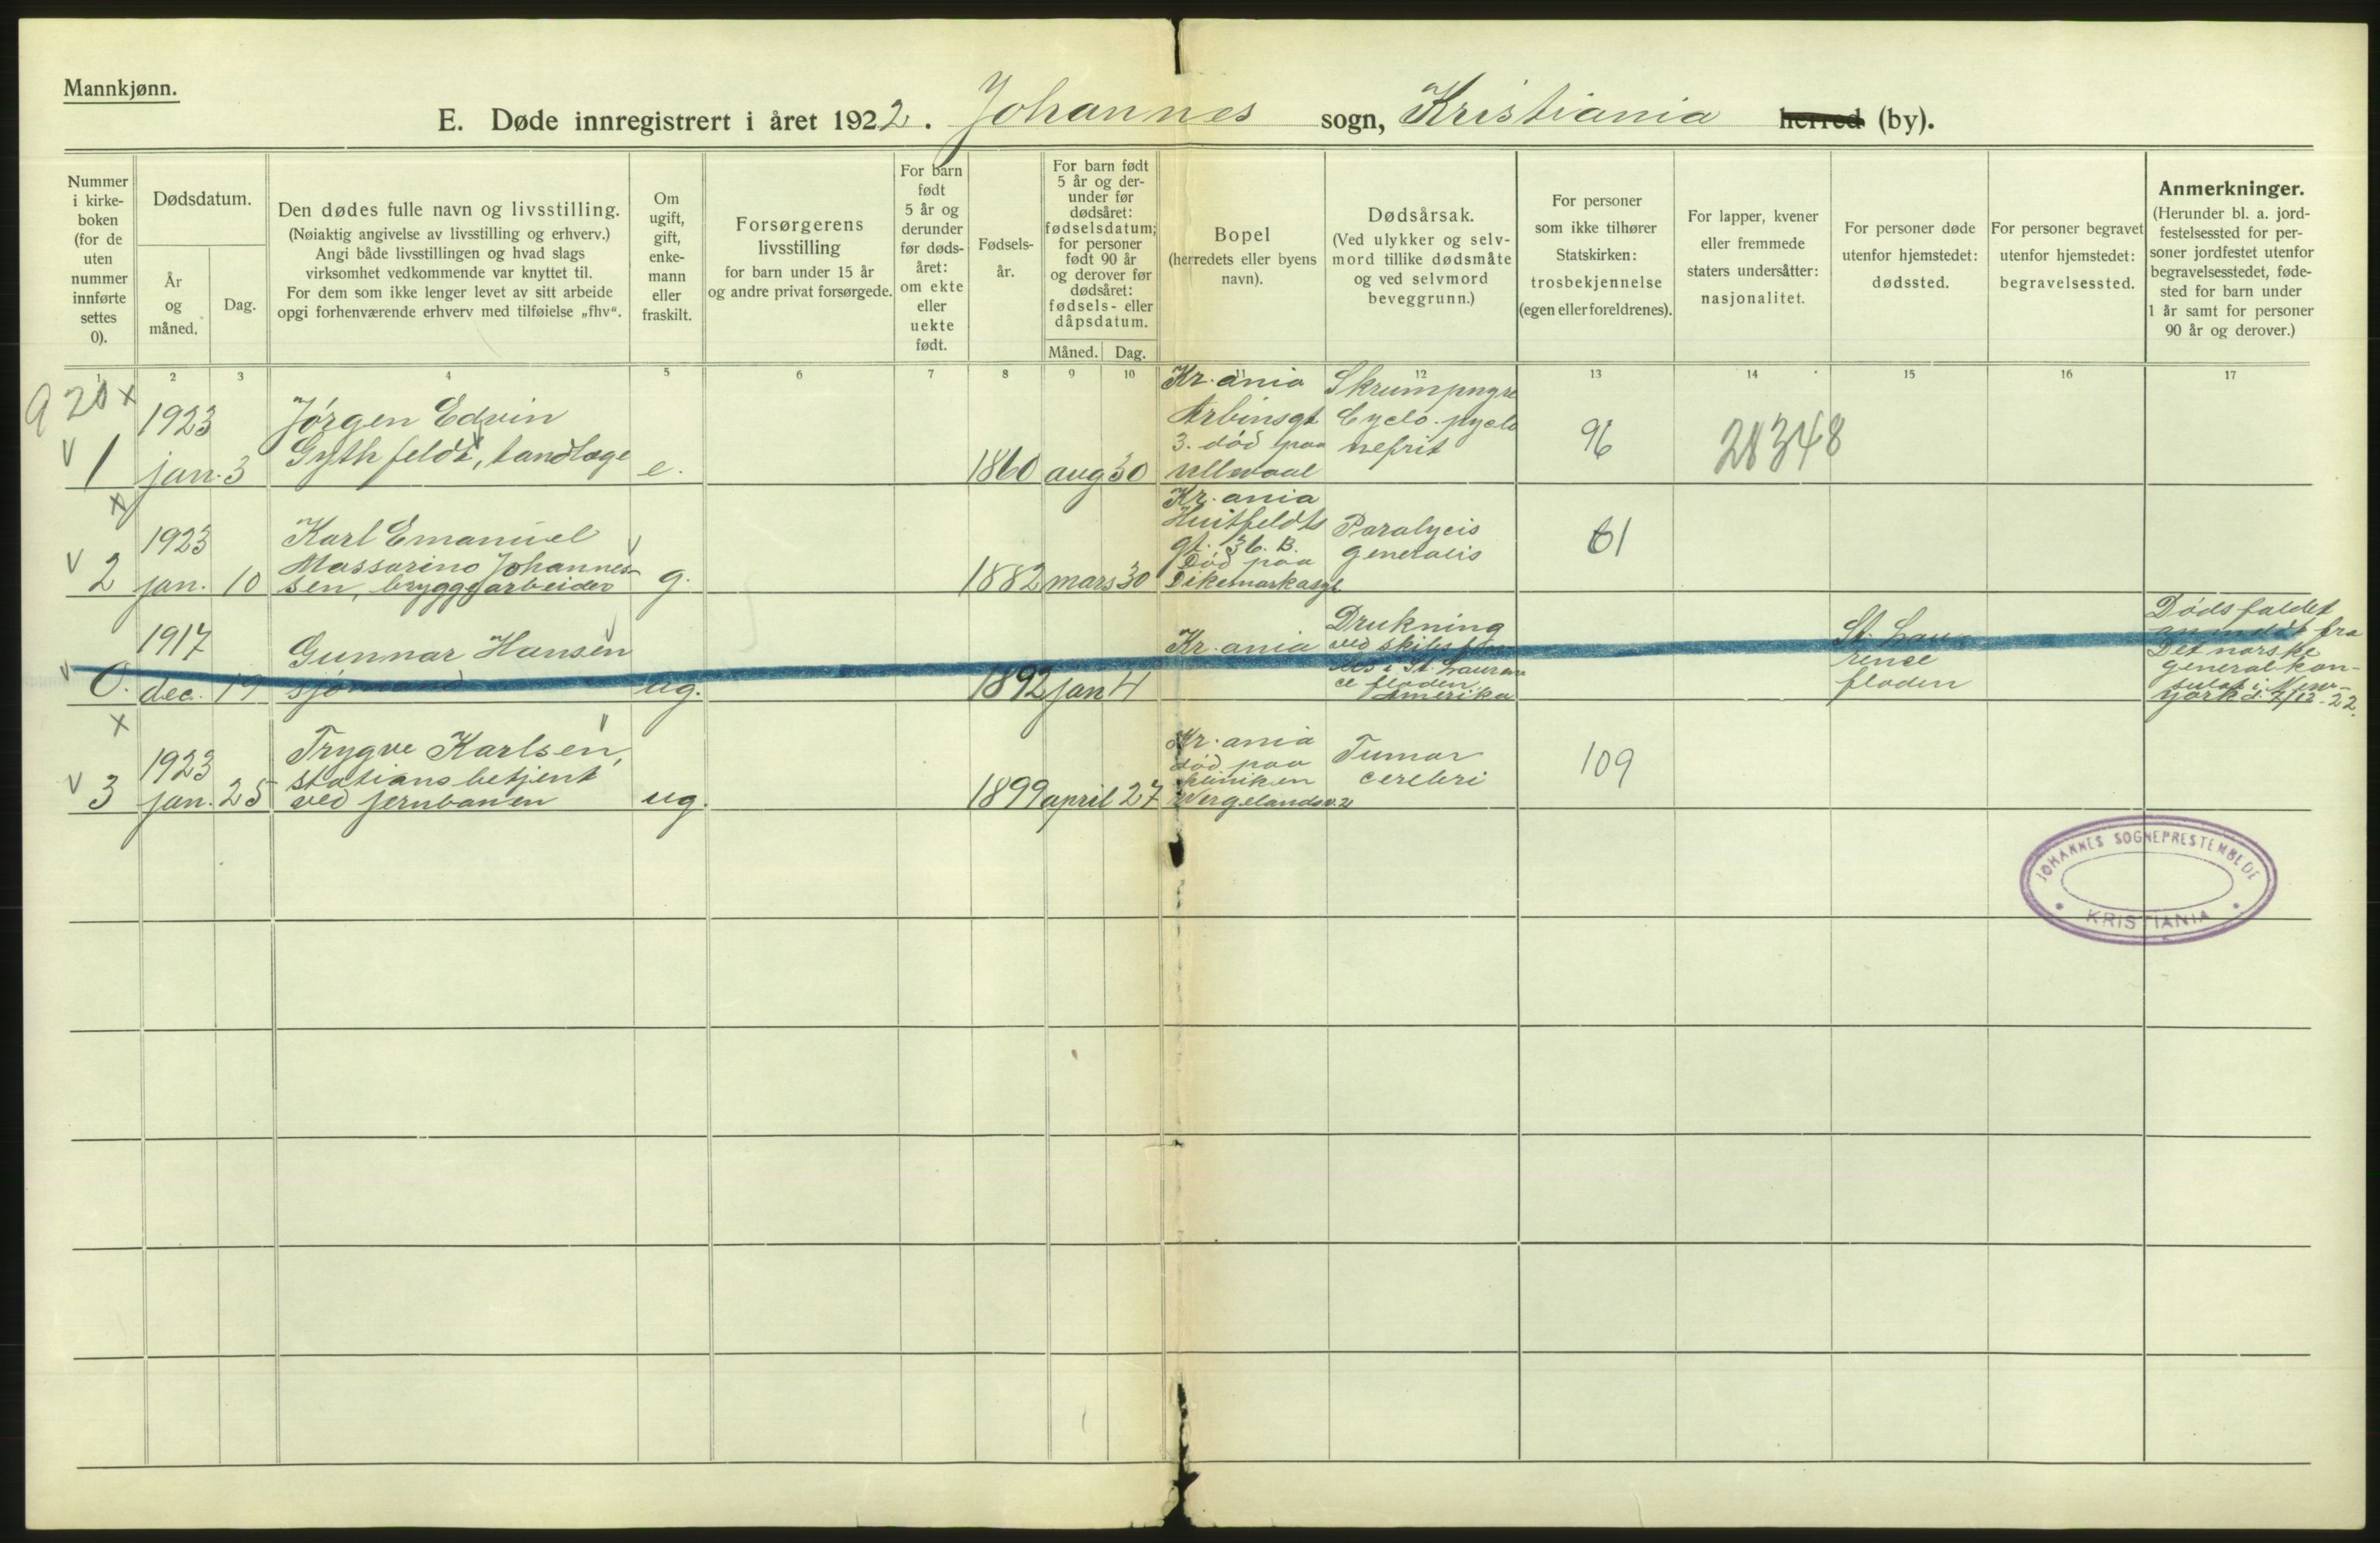 Mannkjønn.
E. Døde innregistrert i året 1922. Johannes sogn, Kristiania herred (by).
Nummer
i kirke-
boken
(for de
uten
nummer
innførte
settes
0).
Dødsdatum.
År
og
måned.
Dag.
Den dødes fulle navn og livsstilling.
(Nøiaktig angivelse av livsstilling og erhverv.)
Angi både livsstillingen og hvad slags
virksomhet vedkommende var knyttet til.
For dem som ikke lenger levet av sitt arbeide
opgi forhenværende erhverv med tilføielse „fhv“.
Om
ugift,
gift,
enke-
mann
eller
fraskilt.
Forsørgerens
livsstilling
for barn under 15 år
og andre privat forsørgede.
For barn
født
5 år og
derunder
før døds-
året:
om ekte
eller
uekte
født.
Fødsels-
år.
For barn født
5 år og der-
under før
dødsåret:
fødselsdatum;
for personer
født 90 år
og derover før
dødsåret:
fødsels- eller
dåpsdatum.
Måned.
Dag.
Bopel
(herredets eller byens
navn).
Dødsårsak.
(Ved ulykker og selv-
mord tillike dødsmåte
og ved selvmord
beveggrunn.)
For personer
som ikke tilhører
Statskirken:
trosbekjennelse
(egen eller foreldrenes).
For lapper, kvener
eller fremmede
staters undersåtter:
nasjonalitet.
For personer døde
utenfor hjemstedet:
dødssted.
For personer begravet
utenfor hjemstedet:
begravelsessted.
Anmerkninger.
(Herunder bl. a. jord-
festelsessted for per-
soner jordfestet utenfor
begravelsesstedet, føde-
sted for barn under
1 år samt for personer
90 år og derover.)
1 2 3 4 5 6 7 8 9 10 11 12 13 14 15 16 17
920 x
v 1
1923
jan. 3
Jørgen Edvin
Gythfeldt, tandlæge
e.
1860 aug 30
Kr.ania
Arbinsgt
3. død paa
Ullevaal
Skrumpnyre
Cyclo-pyelo
nefrit
96
28348
x
v 2
1923
jan. 10
Karl Emanuel
Massarino Johannes-
sen, bryggearbeider
g.
1882 mars 30
Kr.ania
Huitfeldts
gt. 36. B.
Død paa
Dikemarkasyl
Paralycis
generalis
61
v 0.
1917
dec. 19
Gunnar Hansen
sjømand
ug.
1892 jan 4
Kr.ania
Drukning
ved skibsfor
lis i St. Lauren
ce floden
Amerika
St. Lau-
rence
floden
Dødsfaldet
anmeldt fra
Det norske
generalkon-
sulat i New-
york d. 7/12-22.
x
v 3
1923
jan. 25
Trygve Karlsen,
stationsbetjent
ved jernbanen
ug.
1899 april 27
Kr.ania
død paa
kliniken
Wergelandsv. 2
Tumor
cerebri
109
JOHANNES SOGNEPRESTEMBEDE
KRISTIANIA